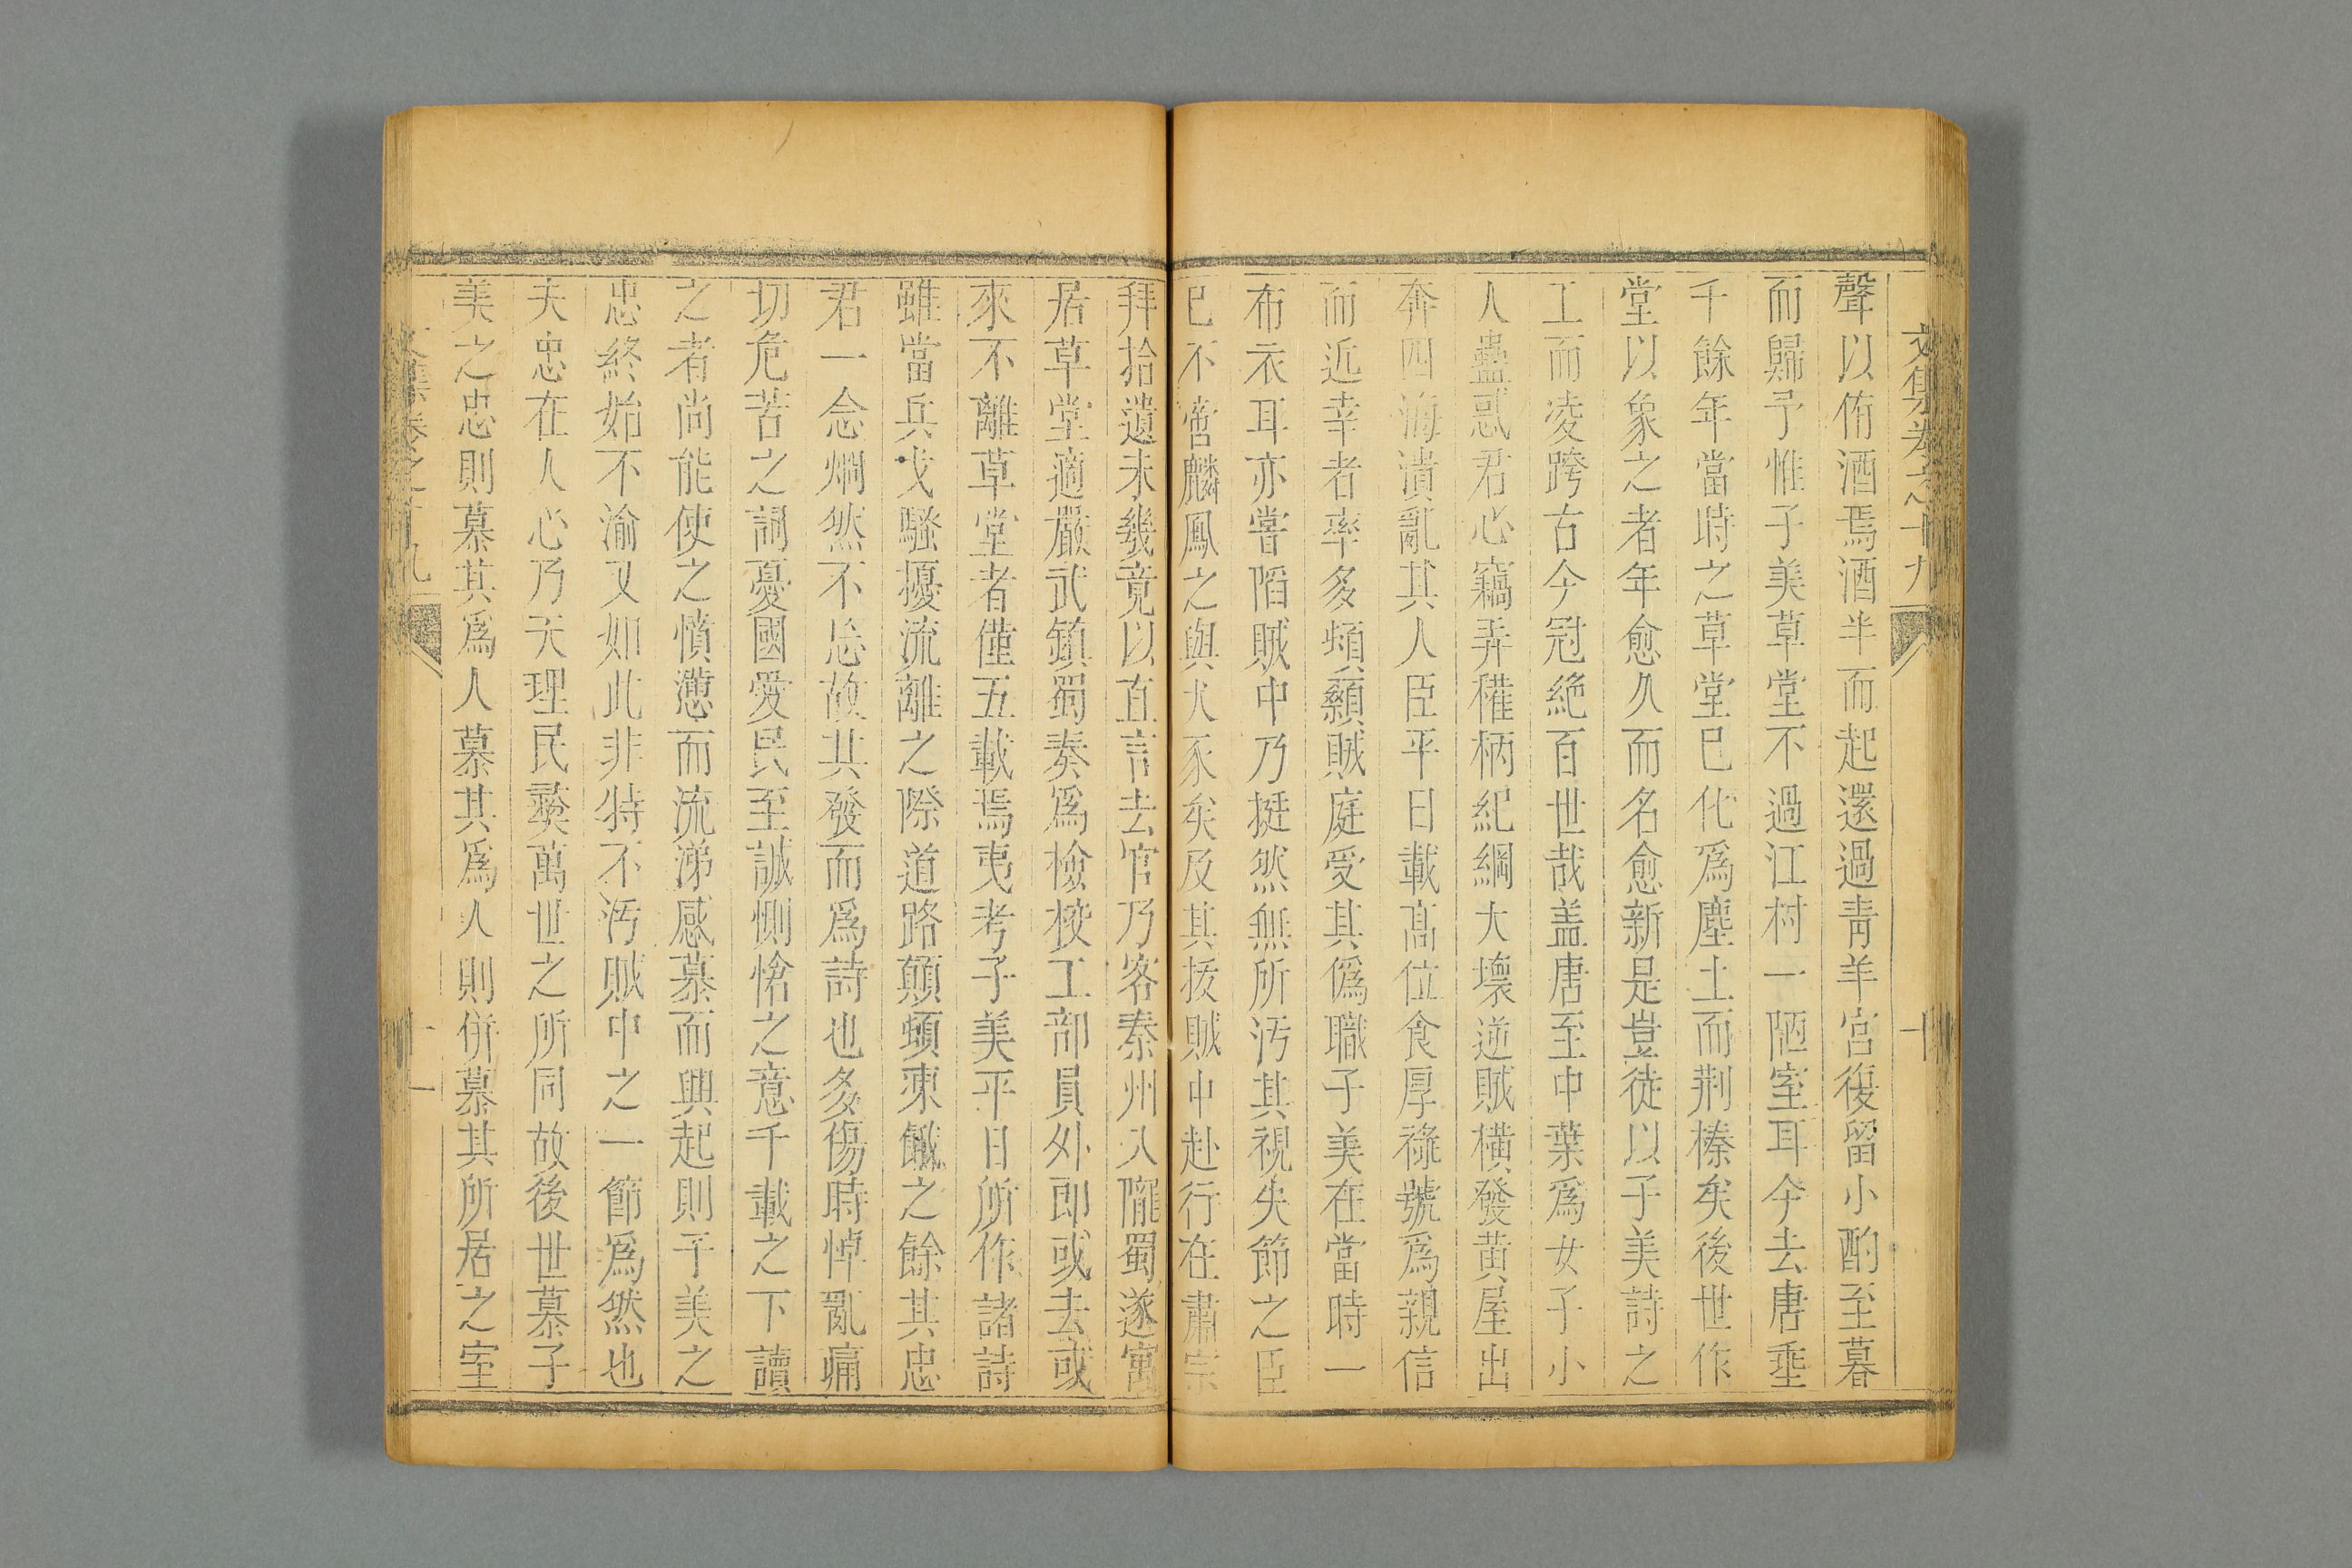 文集卷之十九
十
聲以侑酒焉酒半而起還過青羊宮復留小酌至暮
而歸予惟子美草堂不過江村一陋室耳今去唐垂
千餘年當時之草堂已化爲塵土而荆榛矣後世作
堂以象之者年愈久而名愈新是豈徒以子美詩之
工而凌跨古今冠絶百世哉盖唐至中葉爲女子小
人蠱惑君心竊弄權柄紀綱大壞逆賊橫發黄屋出
奔四海潰亂其人臣平日載髙位食厚祿號爲親信
而近幸者率多頫顙賊庭受其僞職子美在當時一
布衣耳亦嘗陷賊中乃挺然無所汚其視失節之臣
已不啻麟鳳之與犬豕矣及其拔賊中赴行在肅宗
拜拾遺未幾竟以直言去官乃客秦州入隴蜀遂寓
居草堂適嚴武鎮蜀奏爲檢校工部員外郎或去或
來不離草堂者僅五載焉夷考子美平日所作諸詩
雖當兵戈騷擾流離之際道路顛頓凍餓之餘其忠
君一念烱然不忘故其發而爲詩也多傷時悼亂痛
切危苦之詞憂國愛民至誠惻愴之意千載之下讀
之者尚能使之憤懣而流涕感慕而興起則子美之
忠終始不渝又如此非特不汚賊中之一節爲然也
夫忠在人心乃天理民彝萬世之所同故後世慕子
美之忠則慕其爲人慕其爲人則併慕其所居之室
文集卷之十九
十一